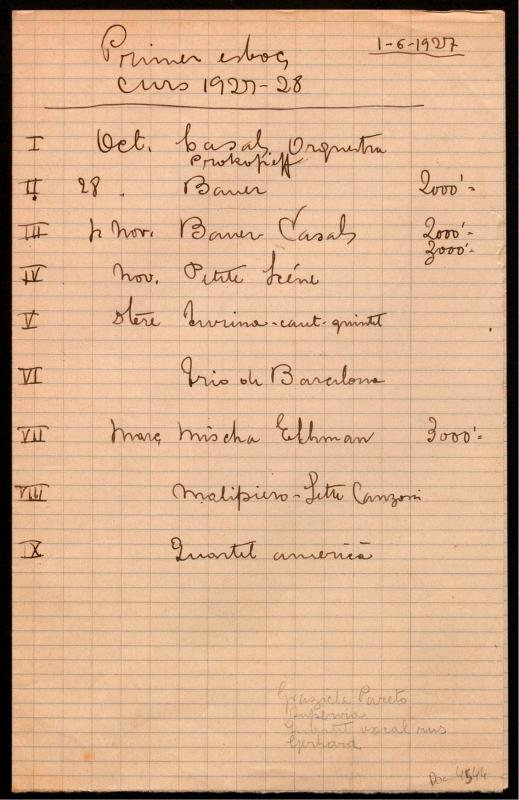 1-6-1927
Primer esboç
curs 1927-28
I Oct. Casals Orquestra
Prokofieff
II 28. Bauer 2000'=
III Nov. Bauer Casals 2000'=
3000'=
IV Nov. Petite Scéne
V Turina-cant-quintet
VI Trio de Barcelona
VII Març Mischa Elhman 3000'=
VIII Malipiero-Sette Canzoni
IX Quartet americà
Graziela Pareto
Supervia
Quartet vocal rus
Gerhard
Doc 4544